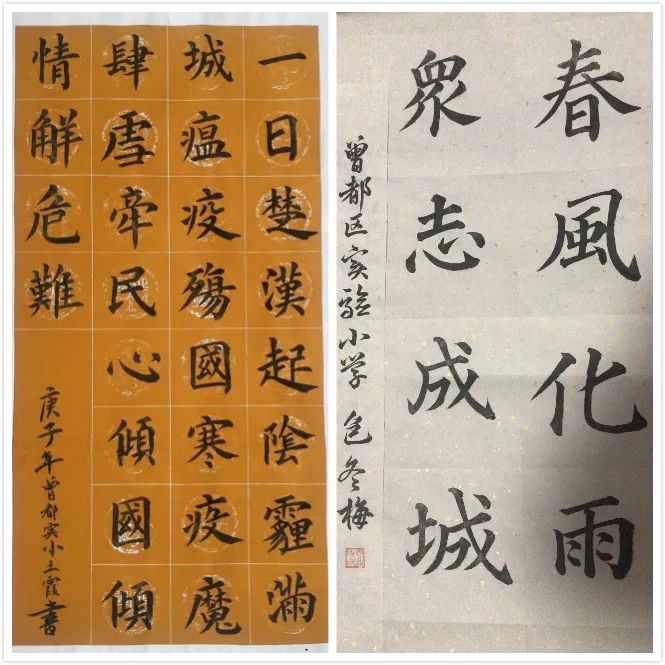 一日楚漢起陰霾滿
城瘟疫殤國寒疫魔
肆雪牽民心傾國傾
情解危難
庚子年曾都实小王霞書
春風化雨
眾志成城
曾都区实验小学 包冬梅